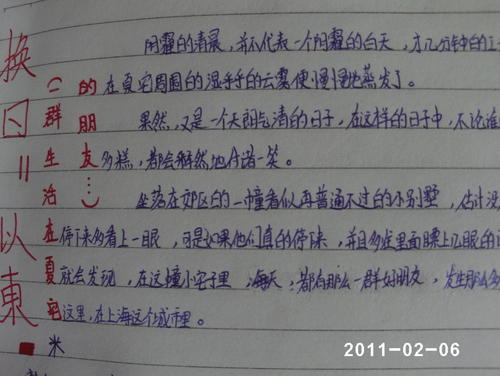 换日 以東
一群生活在夏宅
的朋友
阴霾的清晨，并不代表一个阴霾的白天，才几分钟的工
在夏宅周围的湿乎乎的云雾便慢慢地蒸发了。
果然，又是一个天朗气清的日子，在这样的日子中，不论谁
多糕，都会释然地付诸一笑。
坐落在郊区的一幢看似再普通不过的小别墅，估计没
停下来多看上一眼，可是如果他们真的停下来，并且多往里面瞟上几眼的
就会发现，在这幢小宅子里，每天，都有那么一群好朋友，发生那么多
这里，在上海这个城市里。
米
2011-02-06